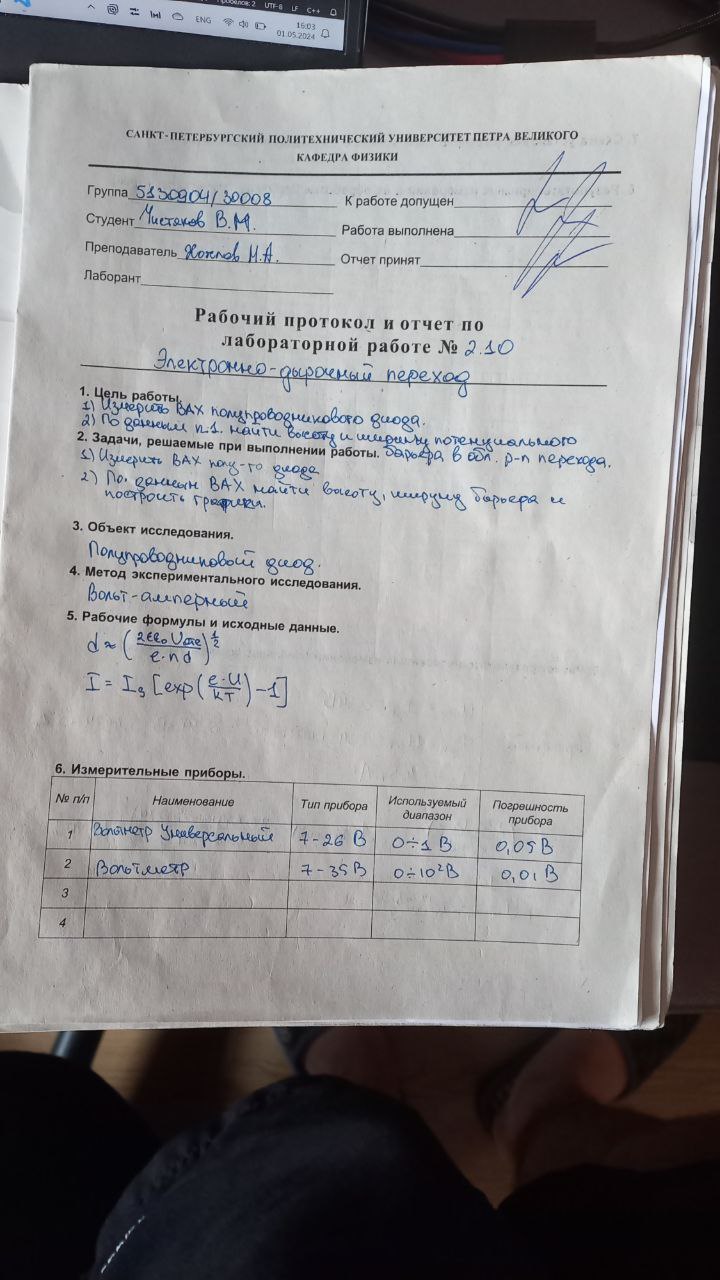 Пробелов: 2 UTF-8 LF C++
ENG 16:03
01.05.2024
САНКТ-ПЕТЕРБУРГСКИЙ ПОЛИТЕХНИЧЕСКИЙ УНИВЕРСИТЕТ ПЕТРА ВЕЛИКОГО
КАФЕДРА ФИЗИКИ
Группа 5130904/30008 К работе допущен
Студент Чистяков В.М. Работа выполнена
Преподаватель Н.А. Отчет принят
Лаборант
Рабочий протокол и отчет по
лабораторной работе № 2.10
Электронно-дырочный переход
1. Цель работы.
1) Измерить ВАХ полупроводникового диода.
2) По данным п.1. найти высоту и ширину потенциального
барьера в обл. p-n перехода.
2. Задачи, решаемые при выполнении работы.
1) Измерить ВАХ полу-го диода
2) По данным ВАХ найти высоту, ширину барьера и
построить графики.
3. Объект исследования.
Полупроводниковый диод.
4. Метод экспериментального исследования.
Вольт-амперный
5. Рабочие формулы и исходные данные.
d ≈ (2εε₀ / e·n d)^½
I = I [exp(e·U/kT) - 1]
6. Измерительные приборы.
№ п/п Наименование Тип прибора Используемый диапазон Погрешность прибора
1 Вольтметр Универсальный 7-26 В 0÷1 В 0,05 В
2 Вольтметр 7-35 В 0÷10² В 0,01 В
3
4